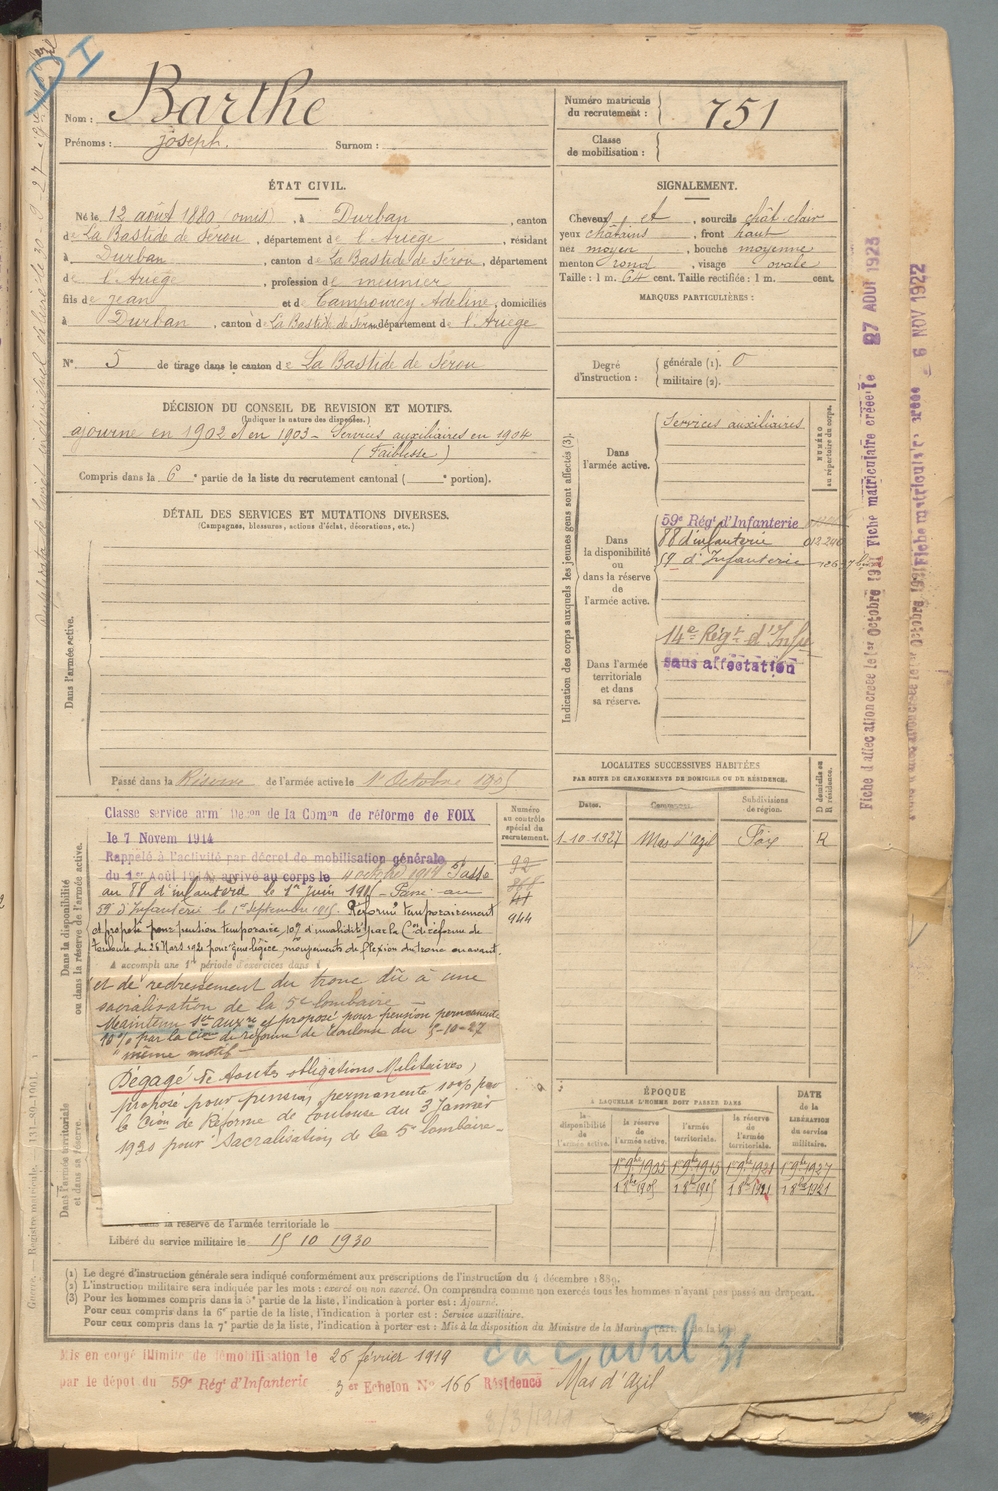 D I
Nom : Barthe
Prénoms : joseph. Surnom :
Numéro matricule du recrutement : 751
Classe de mobilisation :
ÉTAT CIVIL.
Né le 12 août 1880 (omis), à Durban, canton
de La Bastide de Sérou, département de l'Ariège, résidant
à Durban, canton de La Bastide de Sérou, département
de l'Ariège, profession de meunier
fils de jean et de Campourcy Adeline, domiciliés
à Durban, canton de La Bastide de Sérou département de l'Ariège
N° 5 de tirage dans le canton de La Bastide de Sérou
SIGNALEMENT.
Cheveux et, sourcils chât clair
yeux châtains, front haut
nez moyen, bouche moyenne
menton rond, visage ovale
Taille : 1 m. 64 cent. Taille rectifiée : 1 m. cent.
MARQUES PARTICULIÈRES :
Degré d'instruction : générale (1). 0
militaire (2).
DÉCISION DU CONSEIL DE REVISION ET MOTIFS.
(Indiquer la nature des dispenses.)
ajourné en 1902 et en 1903 - Services auxiliaires en 1904
(Faiblesse)
Compris dans la 6e partie de la liste du recrutement cantonal ( e portion).
DÉTAIL DES SERVICES ET MUTATIONS DIVERSES.
(Campagnes, blessures, actions d'éclat, décorations, etc.)
Dans l'armée active.
Passé dans la Réserve de l'armée active le 1er Octobre 1905
Indication des corps auxquels les jeunes gens sont affectés (3).
NUMÉRO au répertoire du corps.
Dans l'armée active. Services auxiliaires
Dans la disponibilité ou dans la réserve de l'armée active.
59e Régt d'Infanterie
88 d'infanterie 012240
59 d'Infanterie
Dans l'armée territoriale et dans sa réserve.
14e Régt d'Infie
sans affectation
LOCALITÉS SUCCESSIVES HABITÉES
PAR SUITE DE CHANGEMENTS DE DOMICILE OU DE RÉSIDENCE.
Dates. Communes. Subdivisions de région. D domicile ou R résidence.
1-10-1327 Mas d'Azil Foix R
Dans la disponibilité ou dans la réserve de l'armée active.
Numéro au contrôle spécial du recrutement.
92
41
944
Classé service armé Don de la Comon de réforme de FOIX
le 7 Novem 1914
Rappelé à l'activité par décret de mobilisation générale
du 1er Août 1914, arrivé au corps le 4 octobre 1914 Passé
au 88 d'infanterie le 1er juin 1915 - Passé au
59 d'Infanterie le 1er septembre 1915. Réformé temporairement
et proposé pour pension temporaire 10% d'invalidité par la Con de réforme de
Toulouse du 26 Mars 1920 pour gêne légère mouvements de flexion du tronc en avant,
A accompli une 1re période d'exercices dans l
et de redressement du tronc dû à une
sacralisation de la 5e lombaire -
Maintenu Sce auxre et proposé pour pension permanente
10% par la Con de réforme de Toulouse du 5-10-27
même motif -
Dégagé de toutes obligations Militaires,
proposé pour pension permanente 10% par
la Cion de Réforme de Toulouse du 3 Janvier
1930 pour Sacralisation de la 5e lombaire -
Dans l'armée territoriale et dans sa réserve.
dans la réserve de l'armée territoriale le
Libéré du service militaire le 15 10 1930
ÉPOQUE
À LAQUELLE L'HOMME DOIT PASSER DANS
la disponibilité de l'armée active. la réserve de l'armée active. l'armée territoriale. la réserve de l'armée territoriale.
DATE de la LIBÉRATION du service militaire.
1er 9bre 1905 1er 9bre 1915 1er 9bre 1921 1er 9bre 1927
1 8bre 1905 1 8bre 1915 1 8bre 1921 1 8bre 1921
(1) Le degré d'instruction générale sera indiqué conformément aux prescriptions de l'instruction du 4 décembre 1889.
(2) L'instruction militaire sera indiquée par les mots : exercé ou non exercé. On comprendra comme non exercés tous les hommes n'ayant pas passé au drapeau.
(3) Pour les hommes compris dans la 5e partie de la liste, l'indication à porter est : Ajourné.
Pour ceux compris dans la 6e partie de la liste, l'indication à porter est : Service auxiliaire.
Pour ceux compris dans la 7e partie de la liste, l'indication à porter est : Mis à la disposition du Ministre de la Marine
Mis en congé illimité de démobilisation le 26 février 1919
par le dépôt du 59e Régt d'Infanterie 3er Echelon N° 166 Résidence Mas d'Azil
avril 31
Guerre. — Registre matricule. 131-89-1901.
Fiche d'affectation créée le 1er Octobre 1921 Fiche matriculaire créée le 27 AOUT 1923
Fiche matricul créée 6 NOV 1922